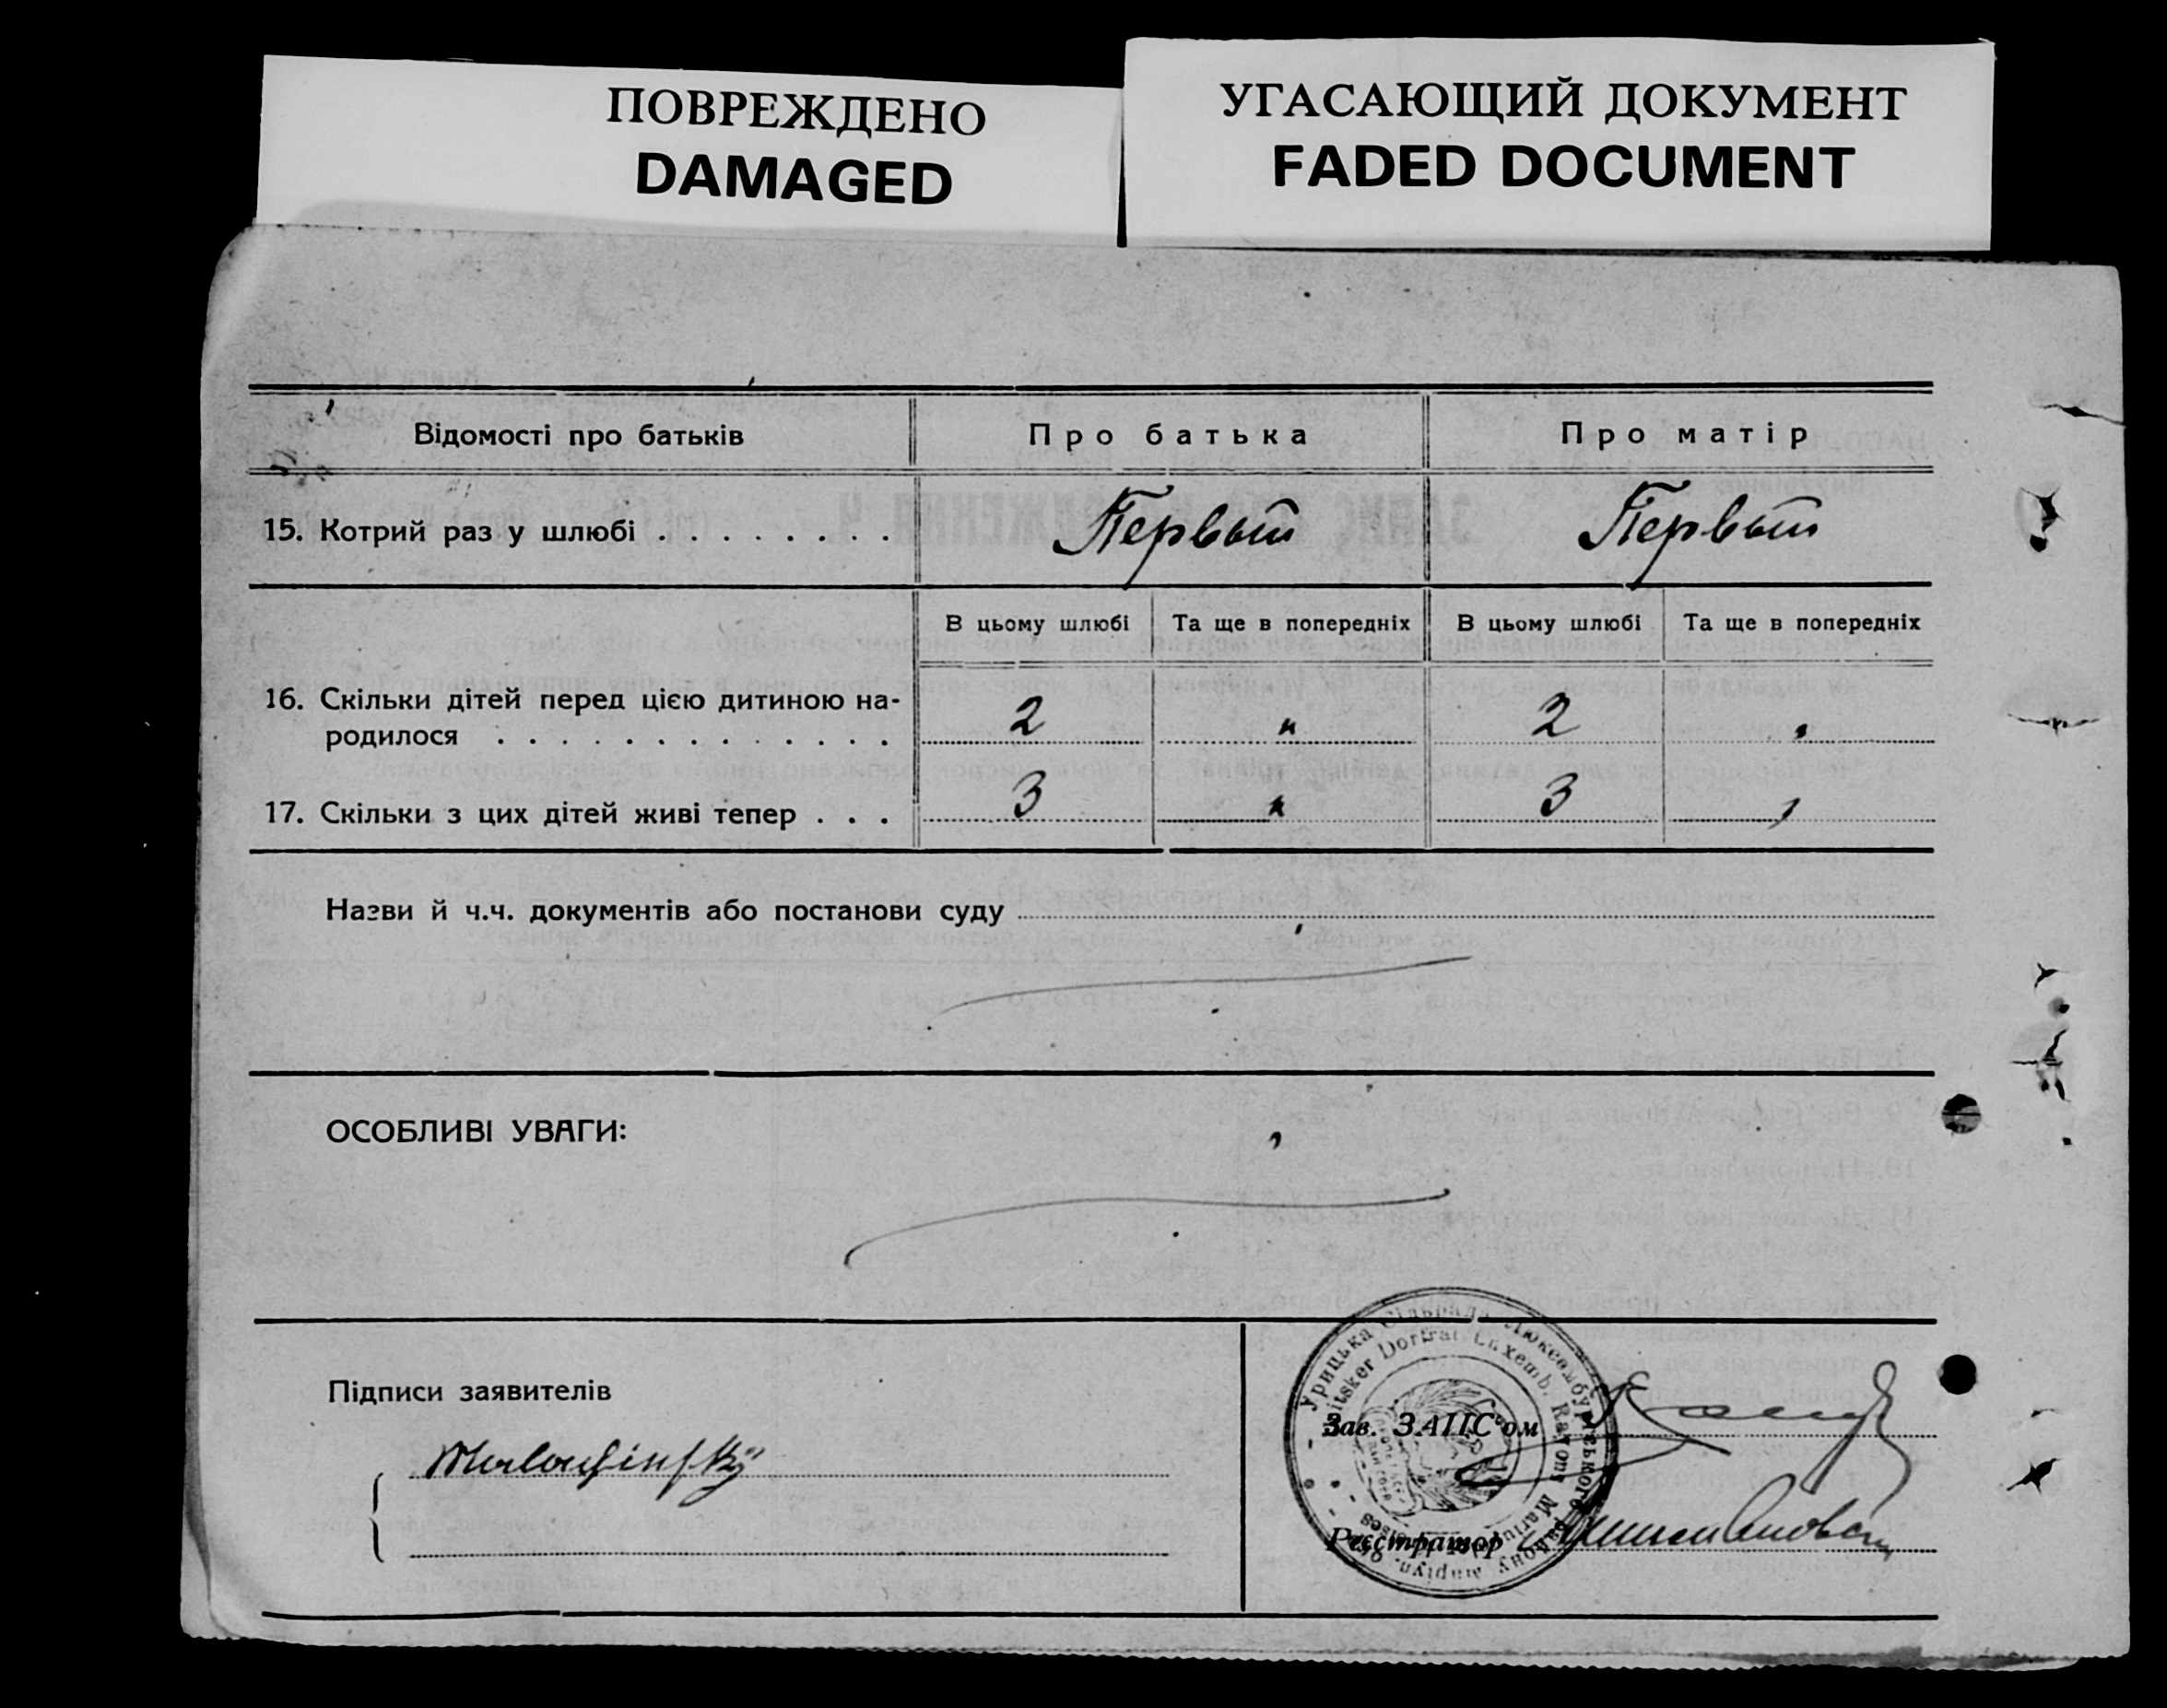 ПОВРЕЖДЕНО
DAMAGED
УГАСАЮЩИЙ ДОКУМЕНТ
FADED DOCUMENT
Відомості про батьків
Про батька
Про матір
15. Котрий раз у шлюбі . . . . . . . .
Первый
Первый
В цьому шлюбі
Та ще в попередніх
В цьому шлюбі
Та ще в попередніх
16. Скільки дітей перед цією дитиною на-
родилося . . . . . . . . . . . . .
2 " 2
17. Скільки з цих дітей живі тепер . . .
3 " 3
Назви й ч.ч. документів або постанови суду
ОСОБЛИВІ УВАГИ:
Підписи заявителів
Зав. ЗАГС'ом
Реєстратор
Урицька Сільрада Люксембурзького району Маріуп.
Dorfrat Luxemb. Rayons Mariup.